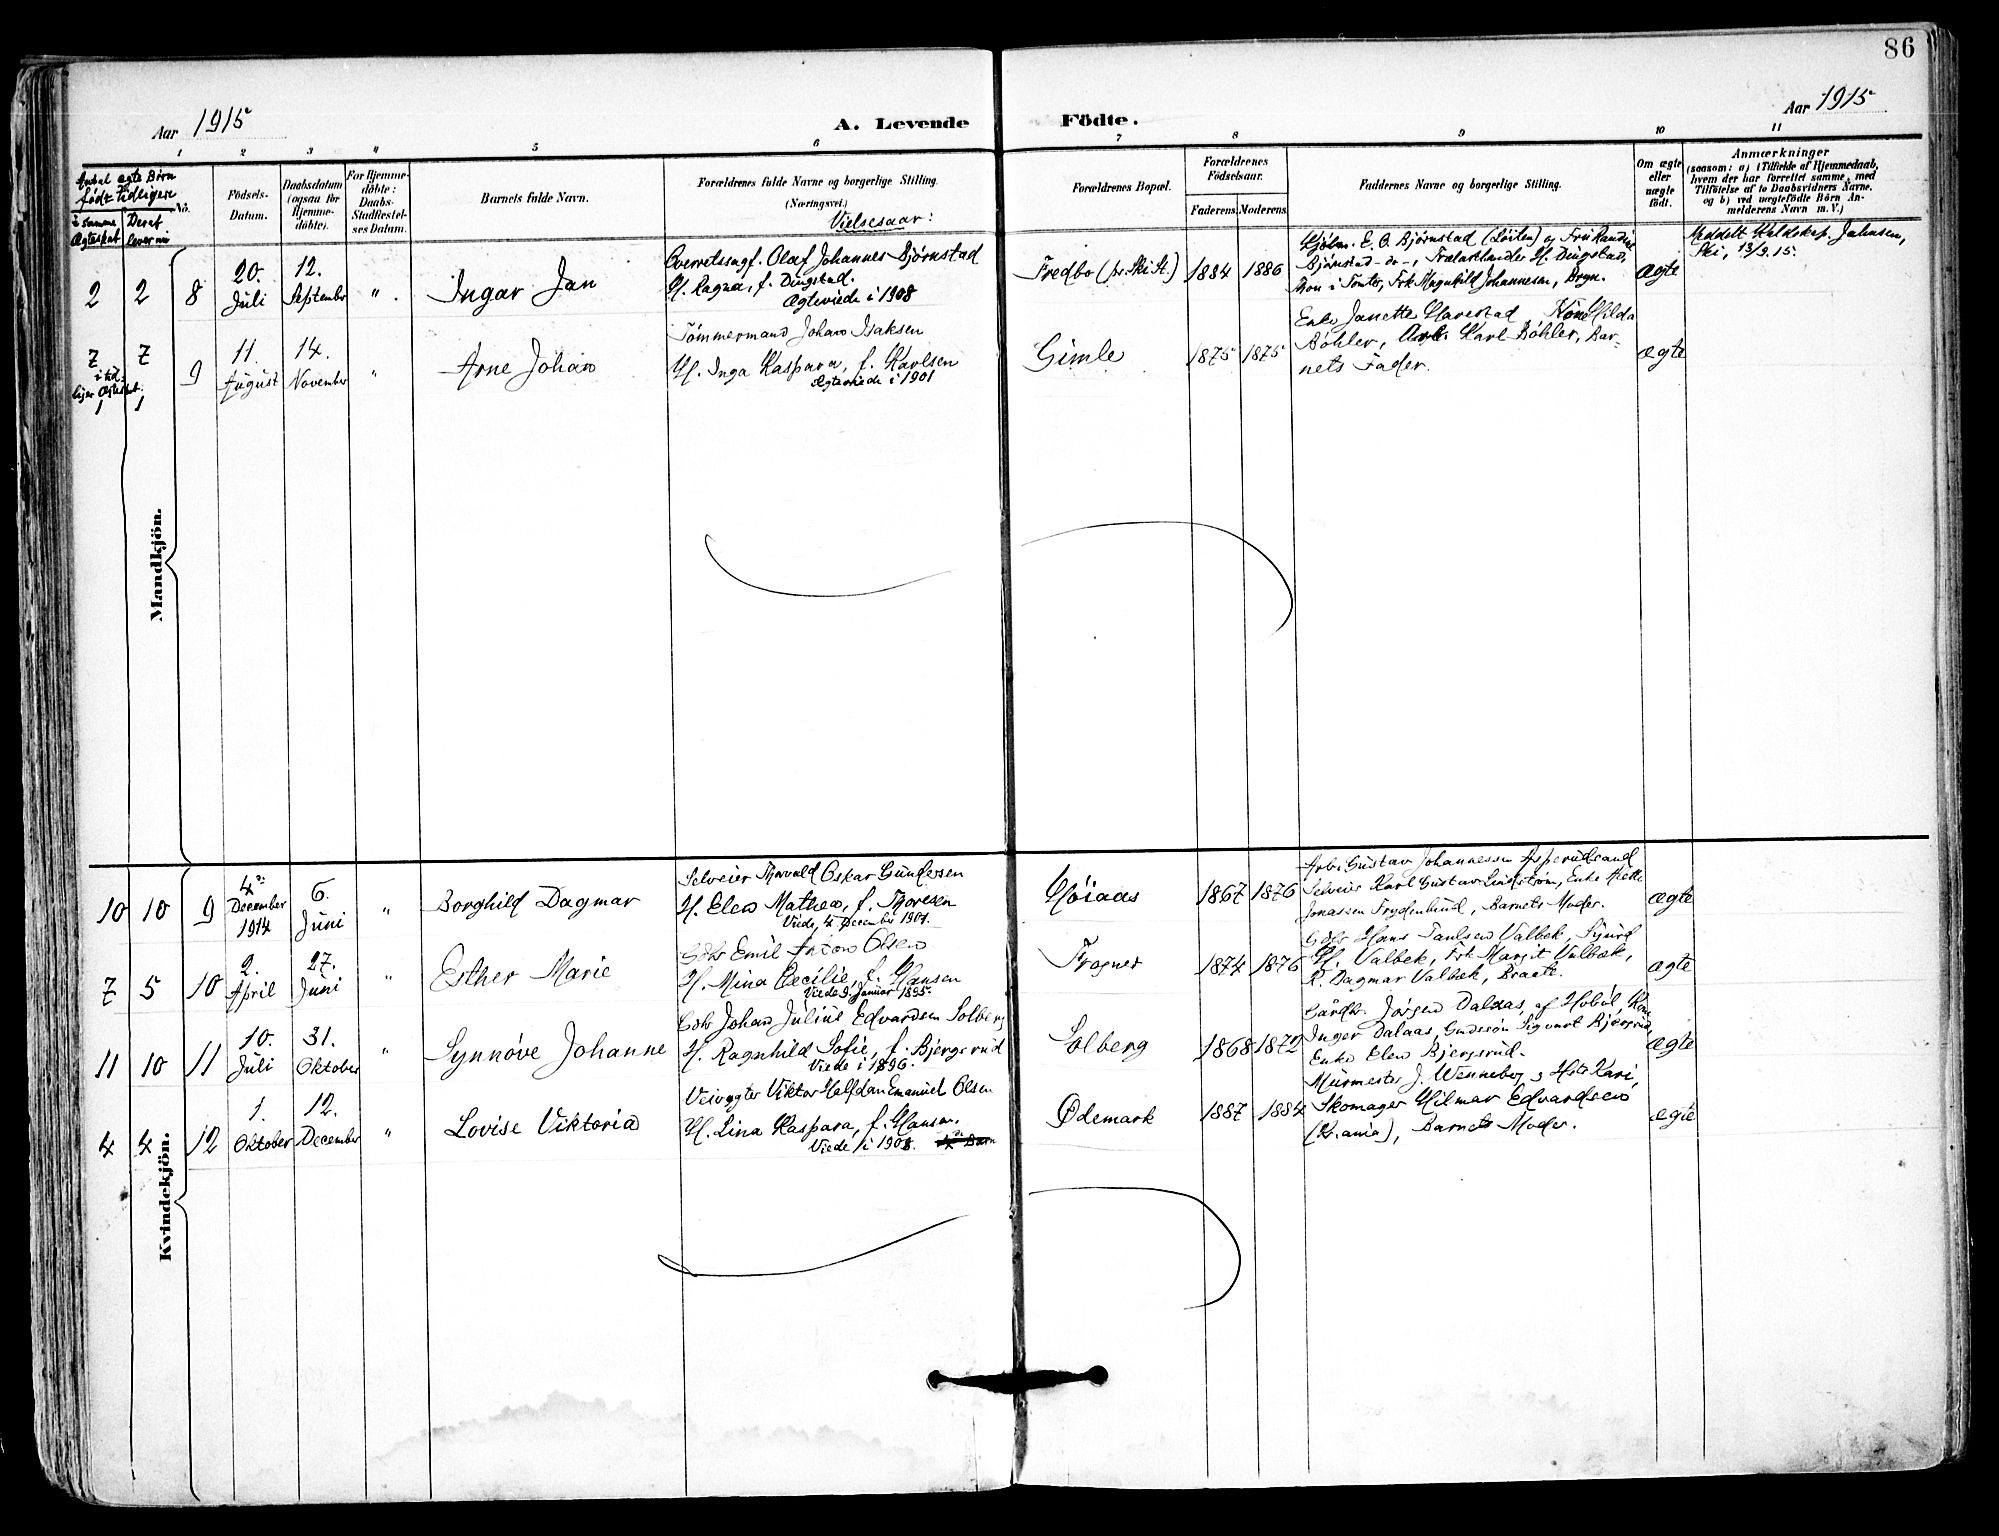 86
Aar 1915
A. Levende Födte.
Aar 1915
1 2 3 4 5 6 7 8 9 10 11
Antal ægte Børn
født tidligere
i samme Ægteskab
Deraf lever nu
No.
Födsels-
Datum.
Daabsdatum
(ogsaa for
Hjemme-
döbte).
For Hjemme-
döbte:
Daabs-
Stadfæstel-
ses Datum.
Barnets fulde Navn.
Forældrenes fulde Navne og borgerlige Stilling.
(Næringsvei.)
Vielsesaar:
Forældrenes Bopæl.
Forældrenes
Födselsaar.
Faderens. Moderens.
Faddernes Navne og borgerlige Stilling.
Om ægte
eller
uægte
födt.
Anmærkninger
(saasom: a) i Tilfælde af Hjemmedaab,
hvem der har forrettet samme, med
Tilföielse af to Daabsvidners Navne.
og b) ved uægtefödte Börn An-
melderens Navn m. V.)
Mandkjön.
2 2 8
20.
Juli
12.
September
"
Ingar Jan
Overretssagf. Olaf Johannes Bjørnstad
H. Ragna, f. Dingstad.
Ægteviede i 1908
Fredbo (pr. Ski St.)
1884 1886
E. O. Bjørnstad (Løiten) og Fru Randine
Bjørnstad - do -, Trælasthandler H. Dingstad,
Mon i Tomter, Frk Magnhild Johannesen, Bryn.
ægte
Meddelt Jahnsen,
Ski, 13/9. 15.
7 7 9
i tid-
ligere Ægteskab:
1 1
11.
August
14.
November
"
Arne Johan
Tømmermand Johan Isaksen
H. Inga Kaspara, f. Karlsen
Ægteviede i 1901
Gimle
1875 1875
Enke Janette Harestad, Kone Hilda
Bøhler, Arb. Karl Bøhler, Bar-
nets Fader.
ægte
Kvindekjön.
10 10 9
4de
December
1914
6.
Juni
"
Borghild Dagmar
Selveier Thorvald Oskar Gundersen
H. Elen Mathea, f. Thoresen
Viede, 4 December 1901.
Høiaas
1867 1876
Arb. Gustav Johannessen Asperudsand
Selveier Karl Gustav Lindstrøm, Enke Mette
Jonassen Frydenlund, Barnets Moder.
ægte
7 5 10
2.
April
27.
Juni
"
Esther Marie
Gbr Emil Anton Olsen
H. Mina Cecilie, f. Hansen
Viede 9. Januar 1895.
Frogner
1874 1876
Gbr Hans Paulsen Valbek, Sigurd
H. Valbek, Frk Margit Valbek,
K. Dagmar Valbek, Braate.
ægte
11 10 11
10.
Juli
31.
Oktober
"
Synnøve Johanne
Gbr Johan Julius Edvardsen Solberg
H. Ragnhild Sofie, f. Bjergsrud
Viede i 1896.
Solberg
1868 1872
Gårdb. Jørgen Dalaas, af Hobøl, Kone
Inger Dalaas, Gaardssøn Sigvart Bjergsrud,
Enke Elen Bjergsrud.
ægte
4 4 12
1.
Oktober
12.
December
"
Lovise Viktoria
Veivogter Viktor Halfdan Emanuel Olsen
H. Lina Kaspara, f. Hansen.
Viede i 1908.
Ødemark
1887 1884
Murmester J. Wenneberg og Hstr Kari,
Skomager Hilmar Edvardsen
(Kr.ania), Barnets Moder.
ægte